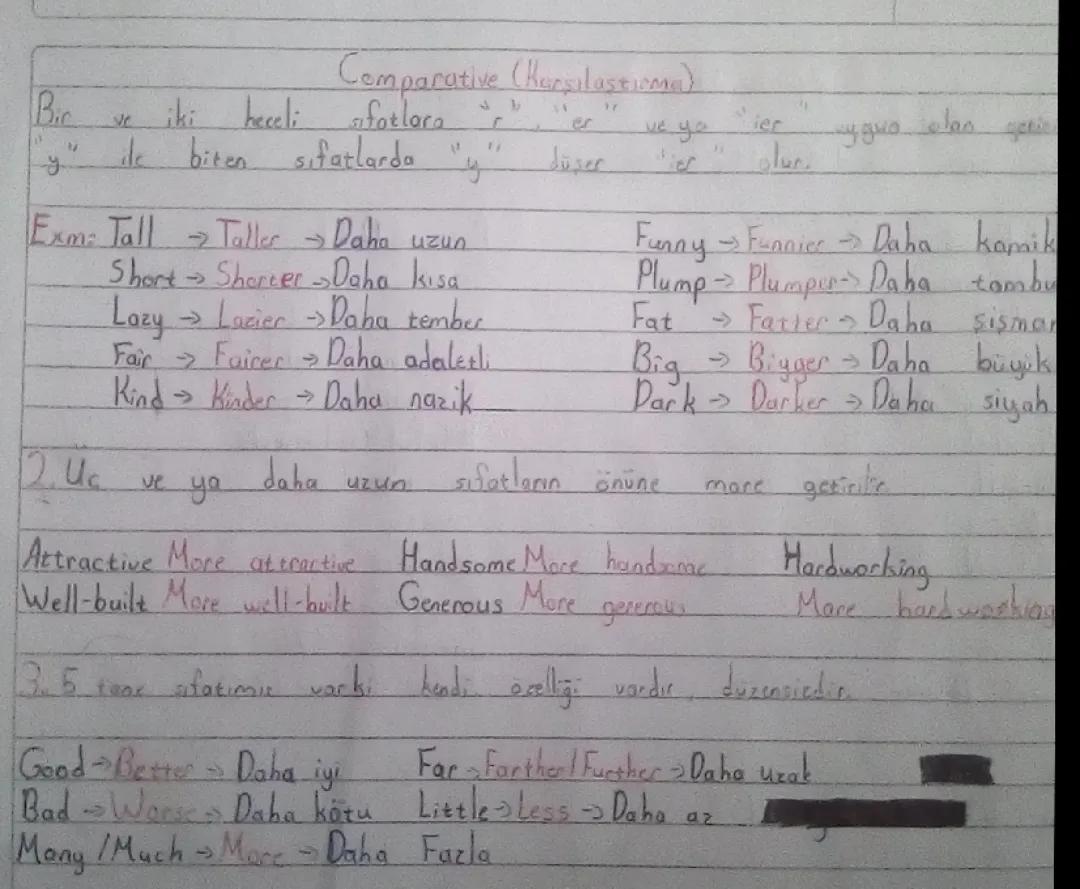 Comparative (Karşılaştırma)
Bir ve iki heceli sıfatlara "r", "er" ve ya "ier" uygun olan
"y" ile biten sıfatlarda "y" düşer "ier" olur.
Exm: Tall → Taller → Daha uzun Funny → Funnier → Daha komik
Short → Shorter → Daha kısa Plump → Plumper → Daha tombu
Lazy → Lazier → Daha tember Fat → Fatter → Daha şişman
Fair → Fairer → Daha adaletli Big → Bigger → Daha büyük
Kind → Kinder → Daha nazik Dark → Darker → Daha siyah
2. Üç ve ya daha uzun sıfatların önüne more getirilir
Attractive More attractive Handsome More handsome Hardworking
Well-built More well-built Generous More generous More hardworking
3. 5 tane sıfatımız varki kendi özelliği vardır, düzensizdir.
Good → Better → Daha iyi Far → Farther/Further → Daha uzak
Bad → Worse → Daha kötü Little → Less → Daha az
Many/Much → More → Daha Fazla